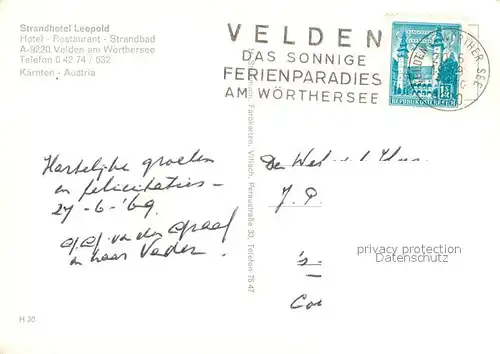 Strandhotel Leopold
Hotel - Restaurant - Strandbad
A-9220 Velden am Wörthersee
Telefon 0 42 74 / 632
Kärnten - Austria
VELDEN
DAS SONNIGE
FERIENPARADIES
AM WÖRTHERSEE
REPUBLIK ÖSTERREICH
Hartelijke groeten
en felicitaties -
27-6-'69.
v. der Graaf
en haar Vader.
Farbkarten, Villach, Peraustraße 33, Telefon 75 47
J. P.
's
privacy protection
Datenschutz
H 20